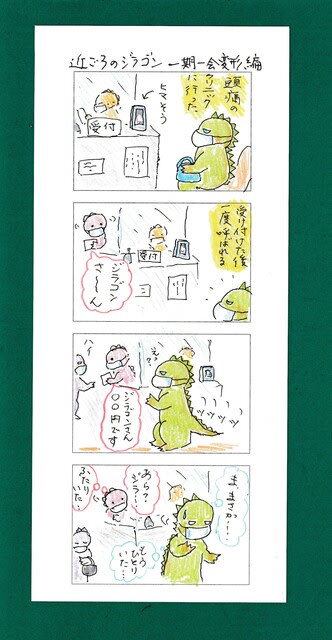 近ごろのジラゴン 一期一会変形編
頭痛の
クリニック
に行った
ヒマそう
受付
受け付けた後
一度呼ばれる
受付
ジラゴン
さ〜ん
えっ?
ハイ
ジラゴンさん
〇〇円です
ま、まさか・・・!
あら?
ジラ・・・!
ふたりいた・・
もう
ひとり
いた・・・